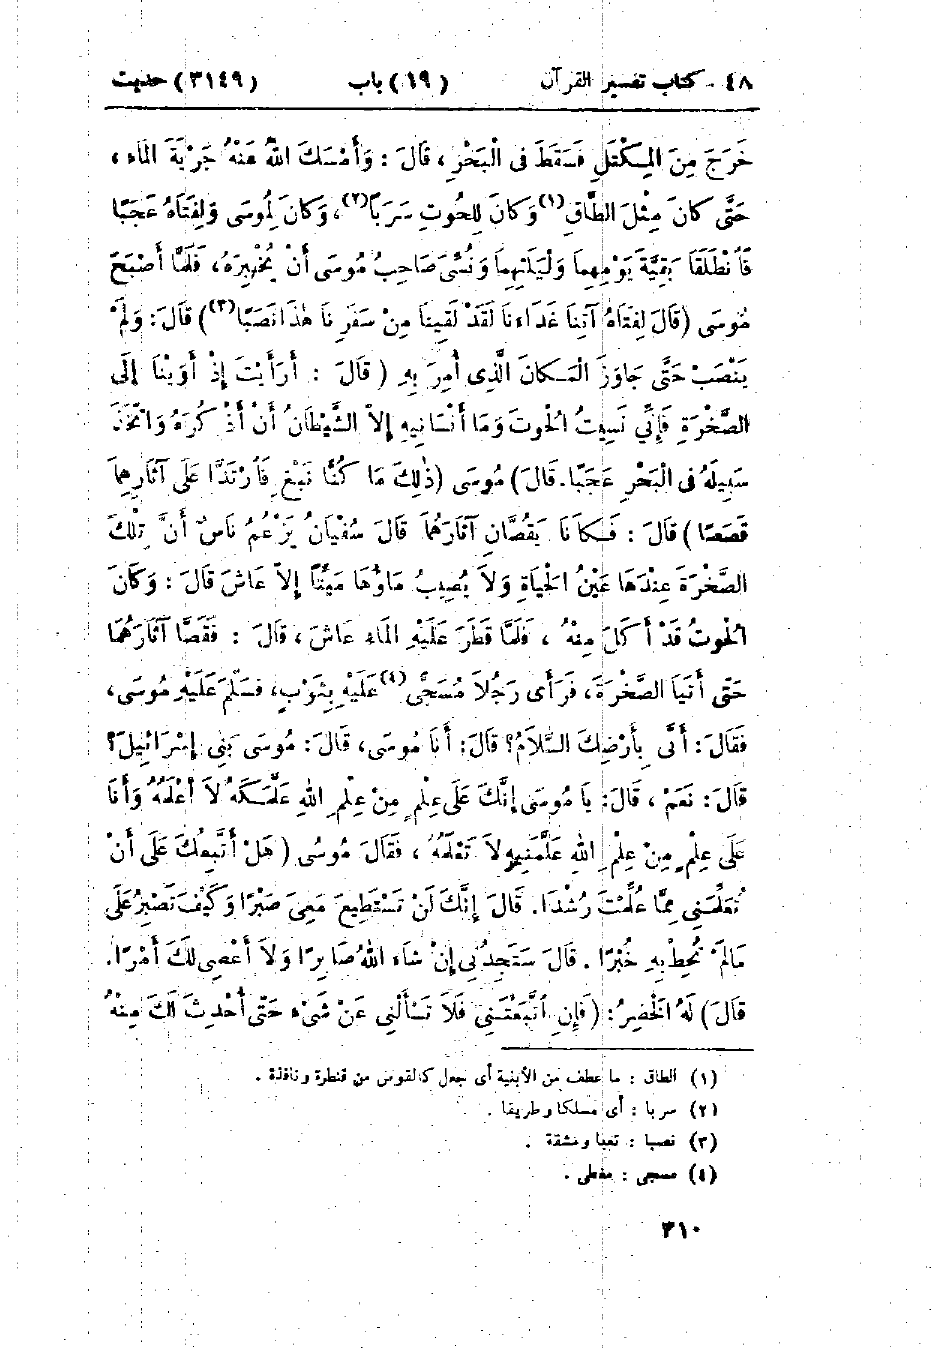 ٤٨ - كتاب تفسير القرآن (١٩) باب (٣١٤٩) حديث
خَرَجَ مِنَ الْمِكْتَلِ فَسَقَطَ فِى الْبَحْرِ ، قَالَ : وَأَمْسَكَ اللهُ عَنْهُ جَرْيَةَ الْمَاءِ ،
حَتَّى كَانَ مِثْلَ الطَّاقِ(١) وَكَانَ لِلْحُوتِ سَرَبًا(٢)، وَكَانَ لِمُوسَى وَلِفَتَاهُ عَجَبًا
فَانْطَلَقَا بَقِيَّةَ يَوْمِهِمَا وَلَيْلَتِهِمَا وَنُسِّىَ صَاحِبُ مُوسَى أَنْ يُخْبِرَهُ، فَلَمَّا أَصْبَحَ
مُوسَى (قَالَ لِفَتَاهُ آتِنَا غَدَاءَنَا لَقَدْ لَقِينَا مِنْ سَفَرِنَا هٰذَا نَصَبًا(٣)) قَالَ: وَلَمْ
يَنْصَبْ حَتَّى جَاوَزَ الْمَكَانَ الَّذِى أُمِرَ بِهِ ( قَالَ : أَرَأَيْتَ إِذْ أَوَيْنَا إِلَى
الصَّخْرَةِ فَإِنِّي نَسِيتُ الْحُوتَ وَمَا أَنْسَانِيهِ إِلاَّ الشَّيْطَانُ أَنْ أَذْكُرَهُ وَاتَّخَذَ
سَبِيلَهُ فِى الْبَحْرِ عَجَبًا. قَالَ) مُوسَى (ذٰلِكَ مَا كُنَّا نَبْغِ فَارْتَدَّا عَلَى آثَارِهِمَا
قَصَصًا ) قَالَ : فَكَانَا يَقُصَّانِ آثَارَهُمَا قَالَ سُفْيَانُ يَزْعُمُ نَاسٌ أَنَّ تِلْكَ
الصَّخْرَةَ عِنْدَهَا عَيْنُ الْحَيَاةِ وَلاَ يُصِيبُ مَاؤُهَا مَيْتًا إِلاَّ عَاشَ قَالَ : وَكَانَ
الْحُوتُ قَدْ أُكِلَ مِنْهُ ، فَلَمَّا قَطَرَ عَلَيْهِ الْمَاءُ عَاشَ ، قَالَ : فَقَصَّا آثَارَهُمَا
حَتَّى أَتَيَا الصَّخْرَةَ، فَرَأَى رَجُلاً مُسَجًّى(٤) عَلَيْهِ بِثَوْبٍ، فَسَلَّمَ عَلَيْهِ مُوسَى،
فَقَالَ: أَنَّى بِأَرْضِكَ السَّلاَمُ؟ قَالَ: أَنَا مُوسَى، قَالَ: مُوسَى بَنِى إِسْرَائِيلَ؟
قَالَ: نَعَمْ ، قَالَ: يَا مُوسَى إِنَّكَ عَلَى عِلْمٍ مِنْ عِلْمِ اللهِ عَلَّمَكَهُ لاَ أَعْلَمُهُ وَأَنَا
عَلَى عِلْمٍ مِنْ عِلْمِ اللهِ عَلَّمَنِيهِ لاَ تَعْلَمُهُ ، فَقَالَ مُوسَى ( هَلْ أَتَّبِعُكَ عَلَى أَنْ
تُعَلِّمَنِى مِمَّا عُلِّمْتَ رُشْدًا. قَالَ إِنَّكَ لَنْ تَسْتَطِيعَ مَعِىَ صَبْرًا وَكَيْفَ تَصْبِرُ عَلَى
مَالَمْ تُحِطْ بِهِ خُبْرًا . قَالَ سَتَجِدُنِى إِنْ شَاءَ اللهُ صَابِرًا وَلاَ أَعْصِى لَكَ أَمْرًا.
قَالَ) لَهُ الْخَضِرُ: (فَإِنِ اتَّبَعْتَنِى فَلاَ تَسْأَلْنِى عَنْ شَىْءٍ حَتَّى أُحْدِثَ لَكَ مِنْهُ
(١) الطاق : ما عطف من الأبنية أى جعل كالقوس من قنطرة ونافذة .
(٢) سربا : أى مسلكا وطريقا .
(٣) نصبا : تعبا ومشقة .
(٤) مسجى : مغطى .
٣١٠